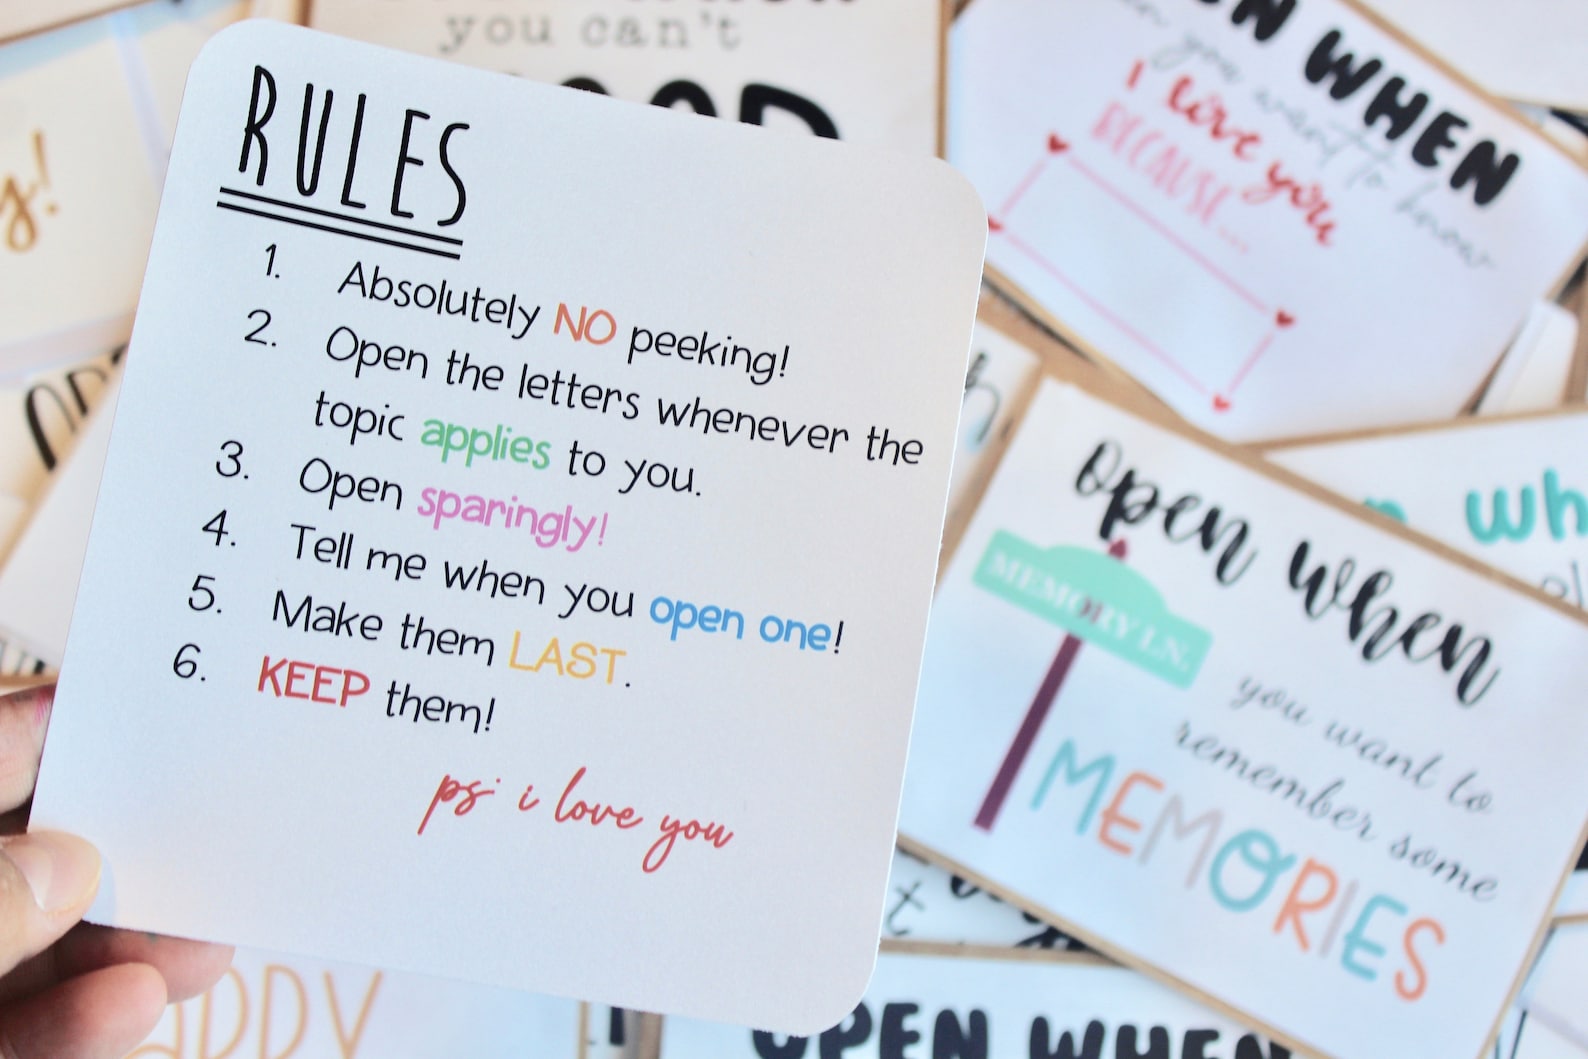 RULES
1. Absolutely NO peeking!
2. Open the letters whenever the
topic applies to you.
3. Open sparingly!
4. Tell me when you open one!
5. Make them LAST.
6. KEEP them!
ps: i love you
you can't
WHEN
you want to know
I love you
BECAUSE...
open when
MEMORY LN.
you want to
remember some
MEMORIES
OPEN WHEN